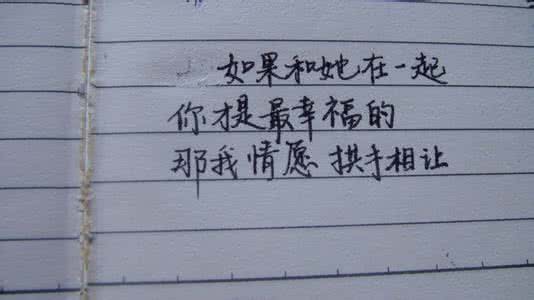 如果和她在一起
你才是最幸福的
那我情愿拱手相让